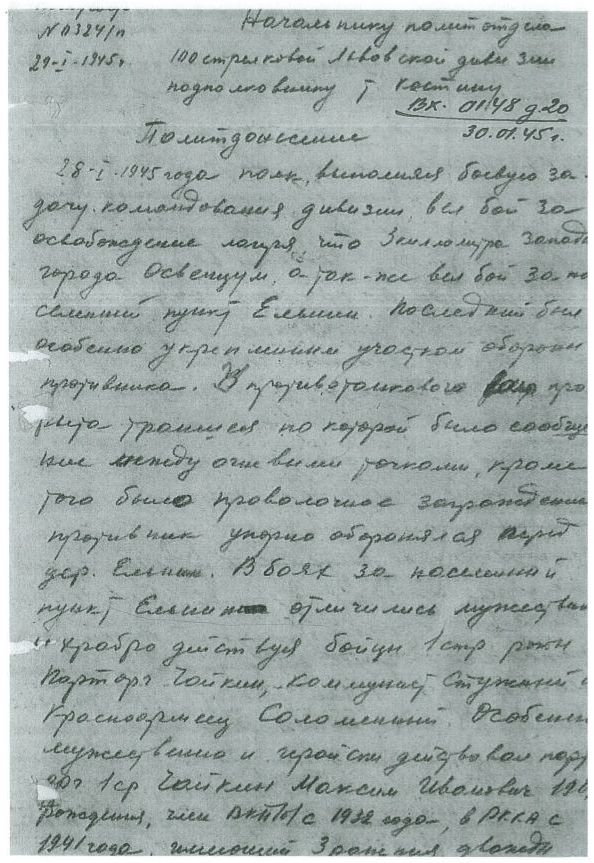 N 0324/п
29-I-1945г.
Начальнику политотдела
100 стрелковой Львовской дивизии
подполковнику т Костину
Вх. 0148 д-20
30.01.45г.
Политдонесение
28-I-1945 года полк, выполняя боевую за-
дачу командования дивизии, вел бой за
освобождение лагеря, что 3 километра запад
города Освенцум, а так-же вел бой за на
селенный пункт Ельнин. Последний был
особенно укрепленный участком обороны
противника. В противотанкового про
рыта траншея по которой было сообще
ние между огневыми точками, кроме
того было проволочное заграждение
противник упорно оборонялся перед
дер. Ельнин. В боях за населенный
пункт Ельнин отличились мужествен
и храбро действуя бойцы 1 стр роты
Парторг Чайкин, коммунист Стужный и
Красноармеец Соломенный. Особенно
мужественно и геройски действовал парт
орг 1 ср Чайкин Максим Иванович
рождения, член ВКП/б/ с 1932 года, в РККА с
1941 года, имеющий 3 ранения дважды